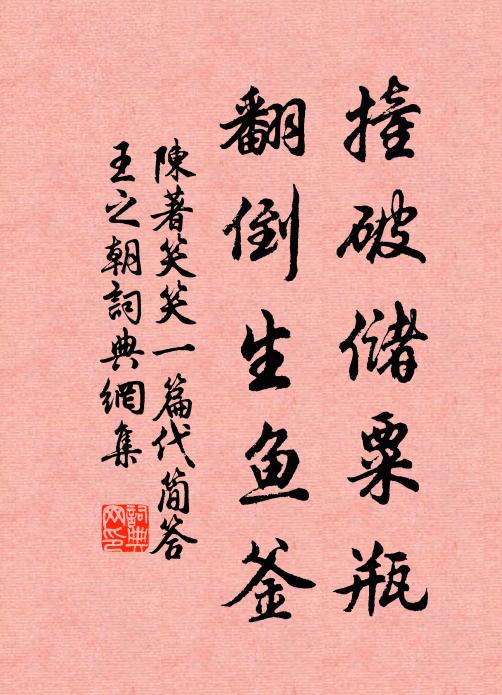 撞破儲粟瓶
翻倒生鱼釜
陳著笑笑一篇代简答
王之朝詞典網集
詞典网印